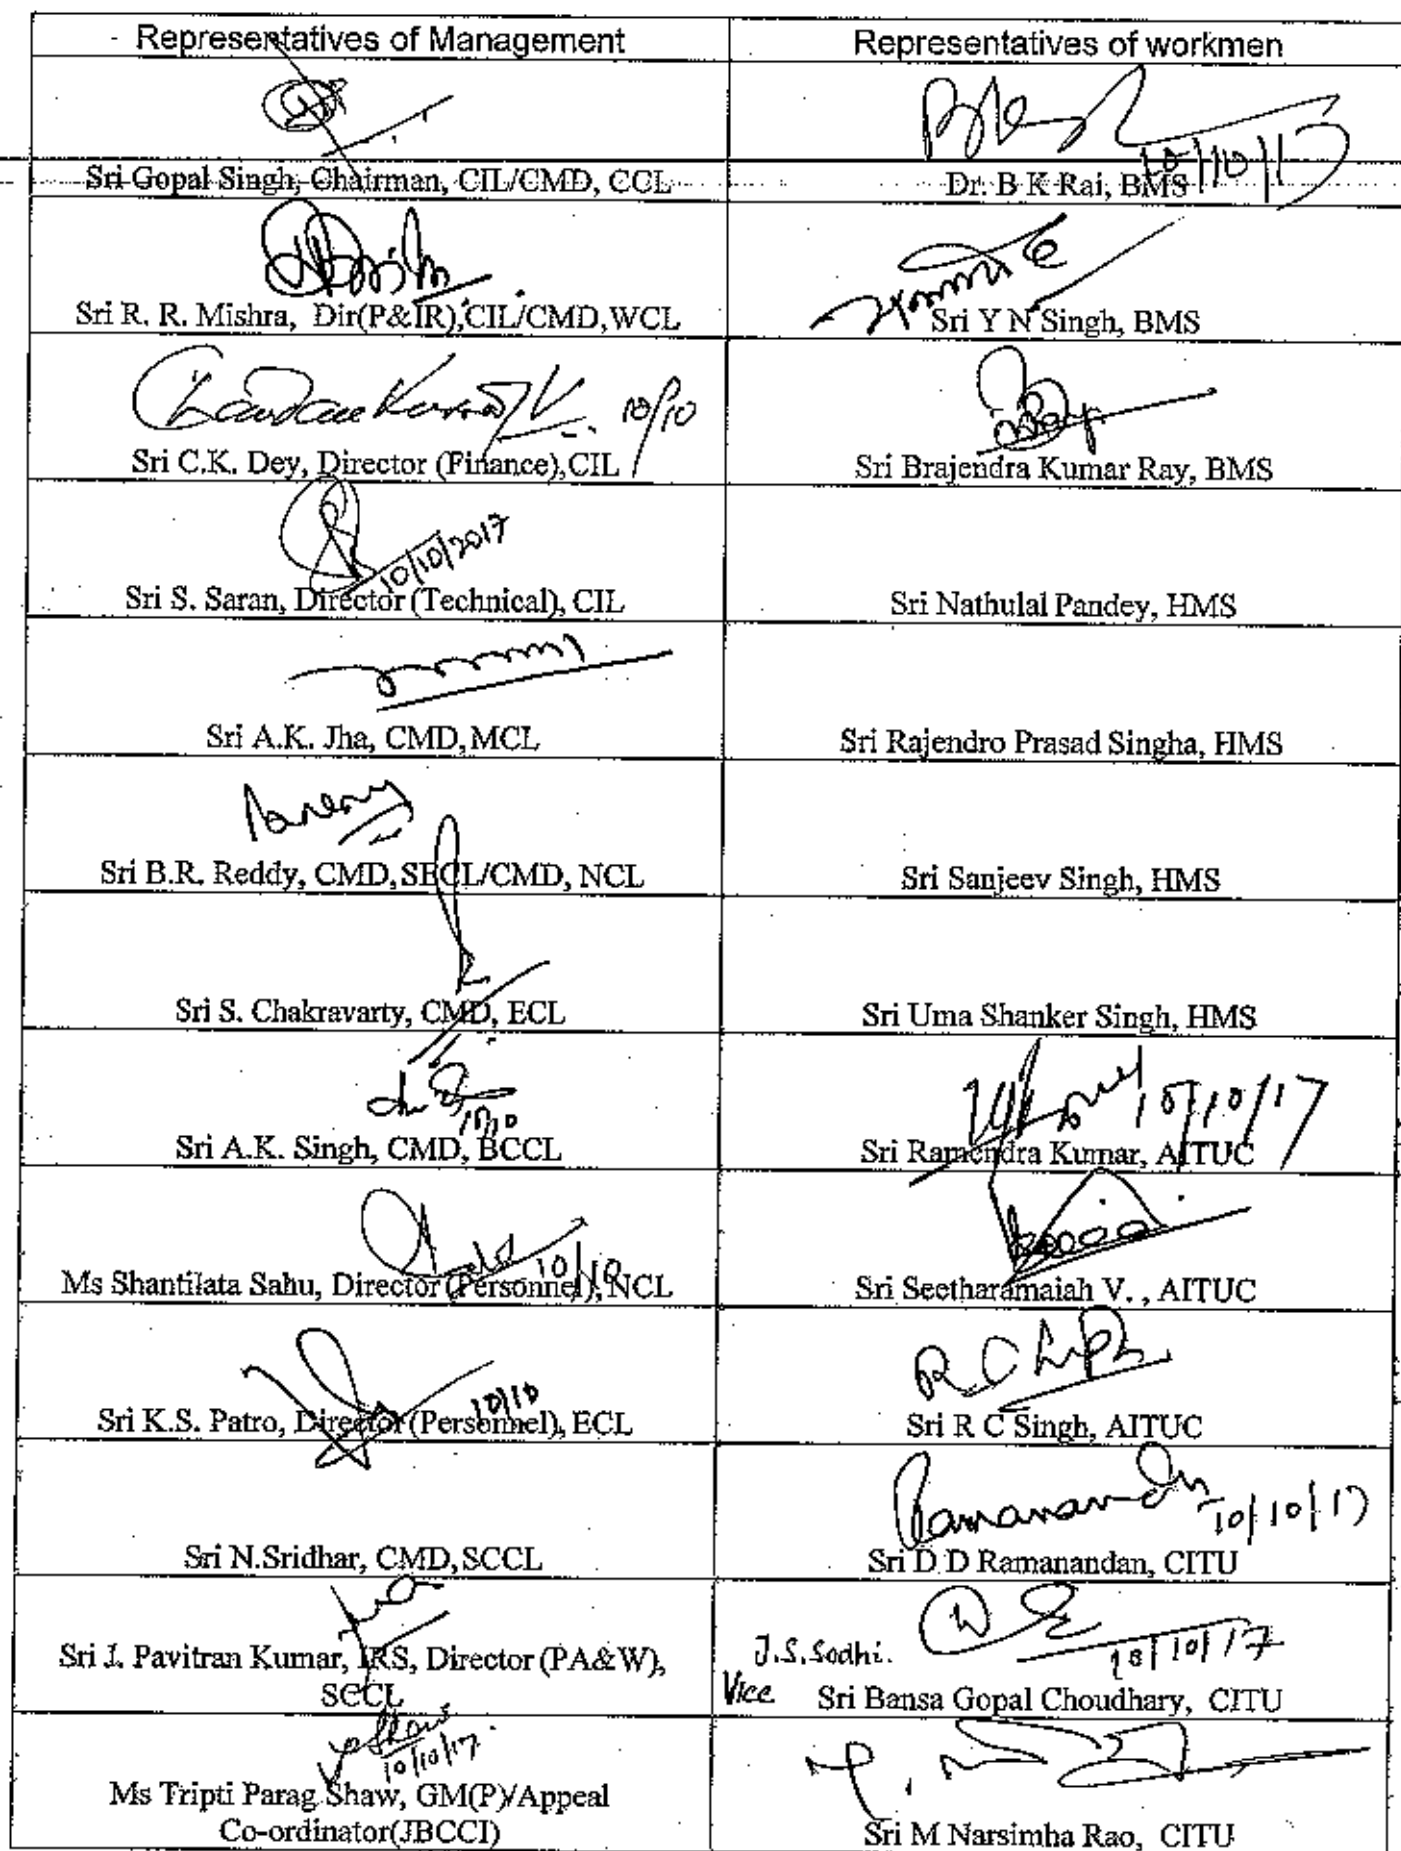 Representatives of Management
Representatives of workmen
10/10/17
Sri Gopal Singh, Chairman, CIL/CMD, CCL
Dr. B K Rai, BMS
Sri R. R. Mishra, Dir(P&IR),CIL/CMD,WCL
Sri Y N Singh, BMS
10/10
Sri C.K. Dey, Director (Finance),CIL
Sri Brajendra Kumar Ray, BMS
10/10/2017
Sri S. Saran, Director (Technical), CIL
Sri Nathulal Pandey, HMS
Sri A.K. Jha, CMD, MCL
Sri Rajendro Prasad Singha, HMS
Sri B.R. Reddy, CMD, SECL/CMD, NCL
Sri Sanjeev Singh, HMS
Sri S. Chakravarty, CMD, ECL
Sri Uma Shanker Singh, HMS
10/10
10/10/17
Sri A.K. Singh, CMD, BCCL
Sri Ramendra Kumar, AITUC
10/10
Ms Shantilata Sahu, Director (Personnel), NCL
Sri Seetharamaiah V. , AITUC
10/10
Sri K.S. Patro, Director (Personnel), ECL
Sri R C Singh, AITUC
Ramanandan
10/10/17
Sri N.Sridhar, CMD, SCCL
Sri D D Ramanandan, CITU
Sri J. Pavitran Kumar, IRS, Director (PA&W),
SCCL
J.S.Sodhi.
10/10/17
Vice Sri Bansa Gopal Choudhary, CITU
10/10/17
Ms Tripti Parag Shaw, GM(P)/Appeal
Co-ordinator(JBCCI)
Sri M Narsimha Rao, CITU